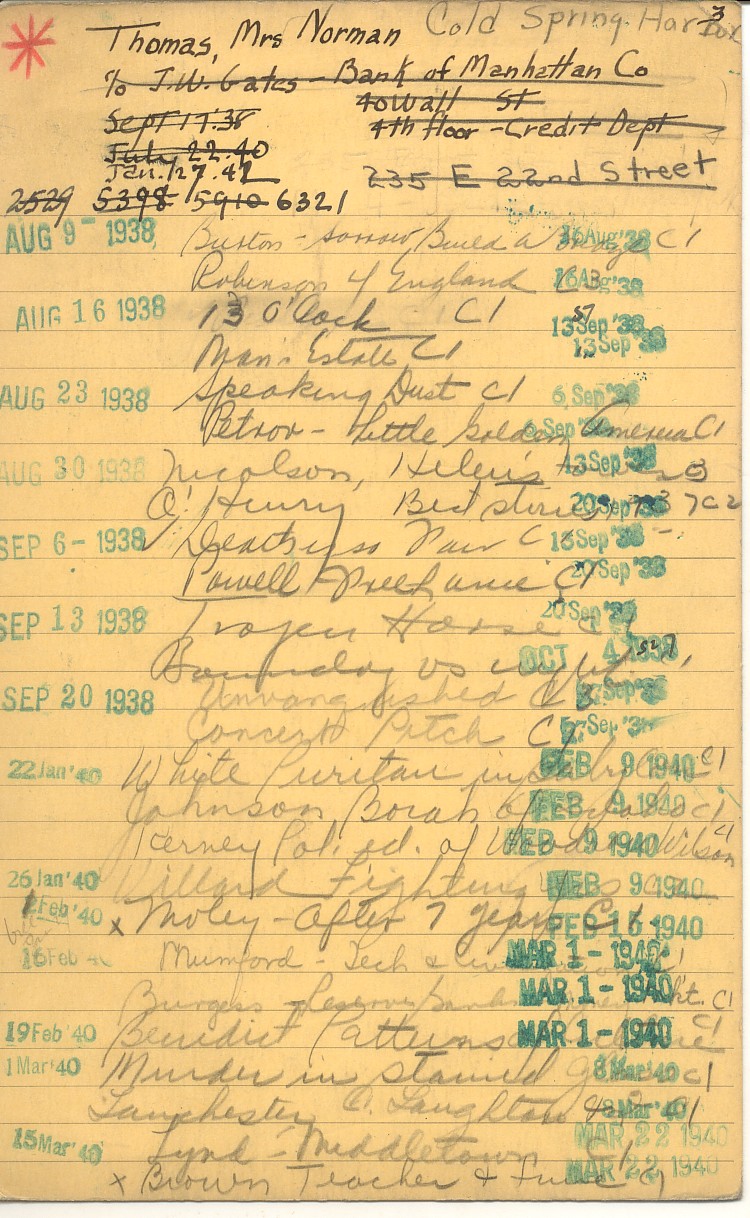 Thomas, Mrs Norman Cold Spring Harbor 3
℅ J.W. Gates - Bank of Manhattan Co
40 Wall St
Sept 17.38 4th floor - Credit Dept
July 22.40
Jan. 27.42 235 E 22nd Street
2529 5398 5910 6321
AUG 9 - 1938 Burton - Sorrow Build a Bridge C1 16 Aug '38
Robinson 4 England C3 16 Aug '38
AUG 16 1938 13 O'Clock C1 13 Sep '38
Man's Estate C1 13 Sep '38
AUG 23 1938 Speaking Dust C1 6 Sep '38
Petrov - Little Golden America C1 6 Sep '38
AUG 30 1938 Nicolson, Helen's 13 Sep '38
O. Henry Best stories C2 20 Sep '38
SEP 6 - 1938 Pair C 13 Sep '38
Powell Free Lance C1 20 Sep '38
SEP 13 1938 Trojan Horse C1 20 Sep '38
Boundary vs OCT 4 1938 527
SEP 20 1938 Unvanquished C Sep '38
Concert Pitch C 27 Sep '38
22 Jan '40 White Puritan in C1 FEB 9 1940
Johnson Borah of Idaho C1 FEB 9 1940
Kerney Pol. ed. of Woodrow Wilson C1 FEB 9 1940
26 Jan '40 Villard Fighting FEB 9 1940
2 Feb '40 x Moley - After 7 years C1 FEB 16 1940
16 Feb 40 Mumford - Tech & C1 MAR 1 - 1940
Burgess - Reserve banks mkt. C1 MAR 1 - 1940
19 Feb '40 Benedict Patterns of Culture C1 MAR 1 - 1940
1 Mar '40 Murder in stained glass C1 8 Mar '40
Lanchester C. Laughton C1 8 Mar '40
15 Mar '40 Lynd - Middletown C1 MAR 22 1940
x Brown Teacher & MAR 22 1940